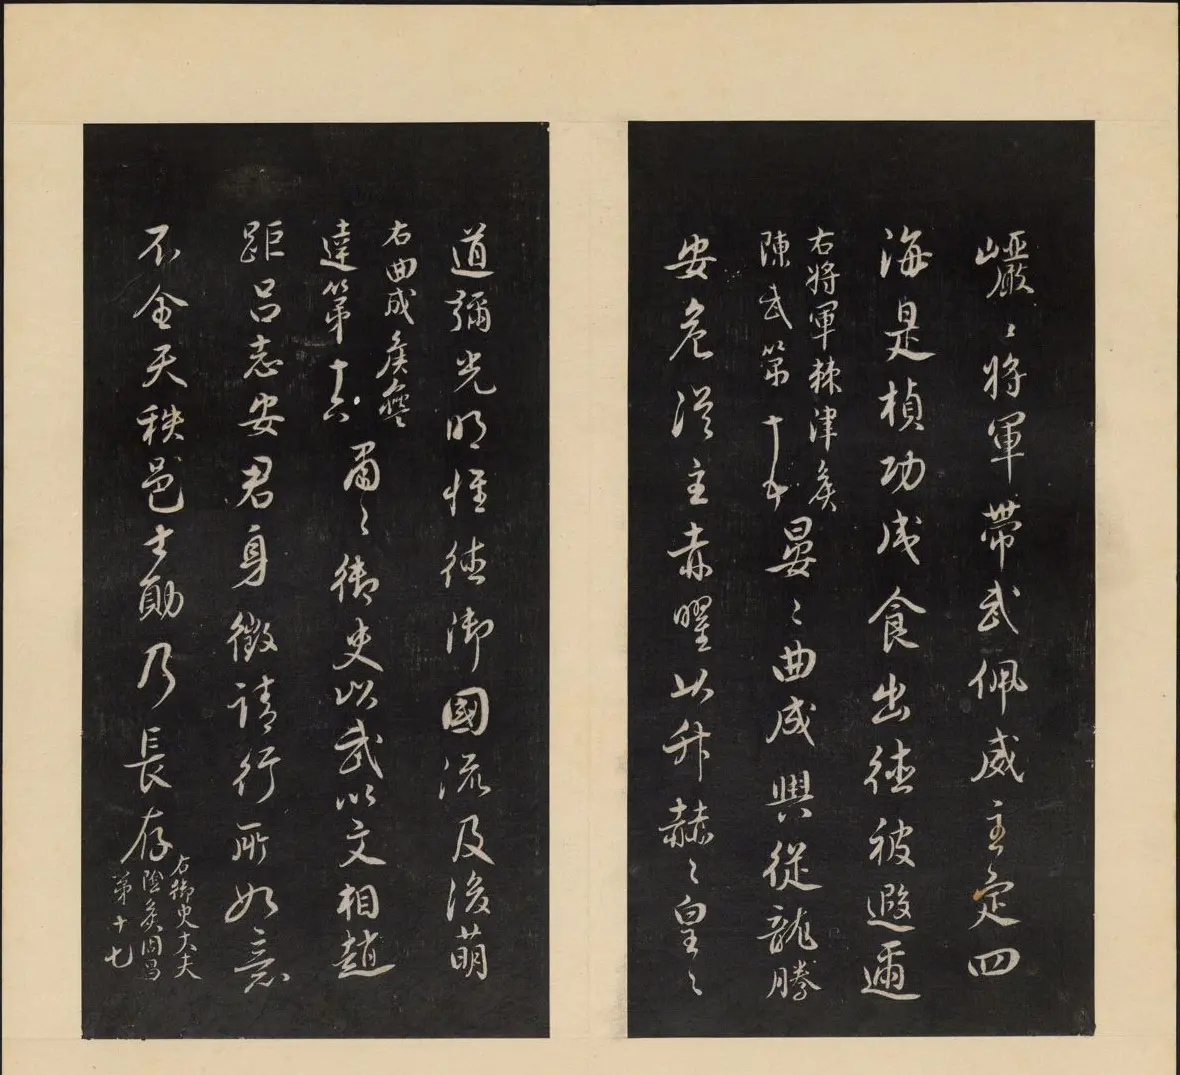 巖〻將軍帶武佩威主定四
海是楨功成食出徳被遐邇
右將軍棘津矦
陳武第十五
晏〻曲成興從龍騰
安危從主赤曜以升赫〻皇〻
道彌光明惟徳御國流及後萌
右曲成矦蠱
達第十六
肅〻御史以武以文相趙
距呂志安君身徵請行所如意
不全天秩邑士勛乃長存
右御史大夫
陰矦周昌
第十七